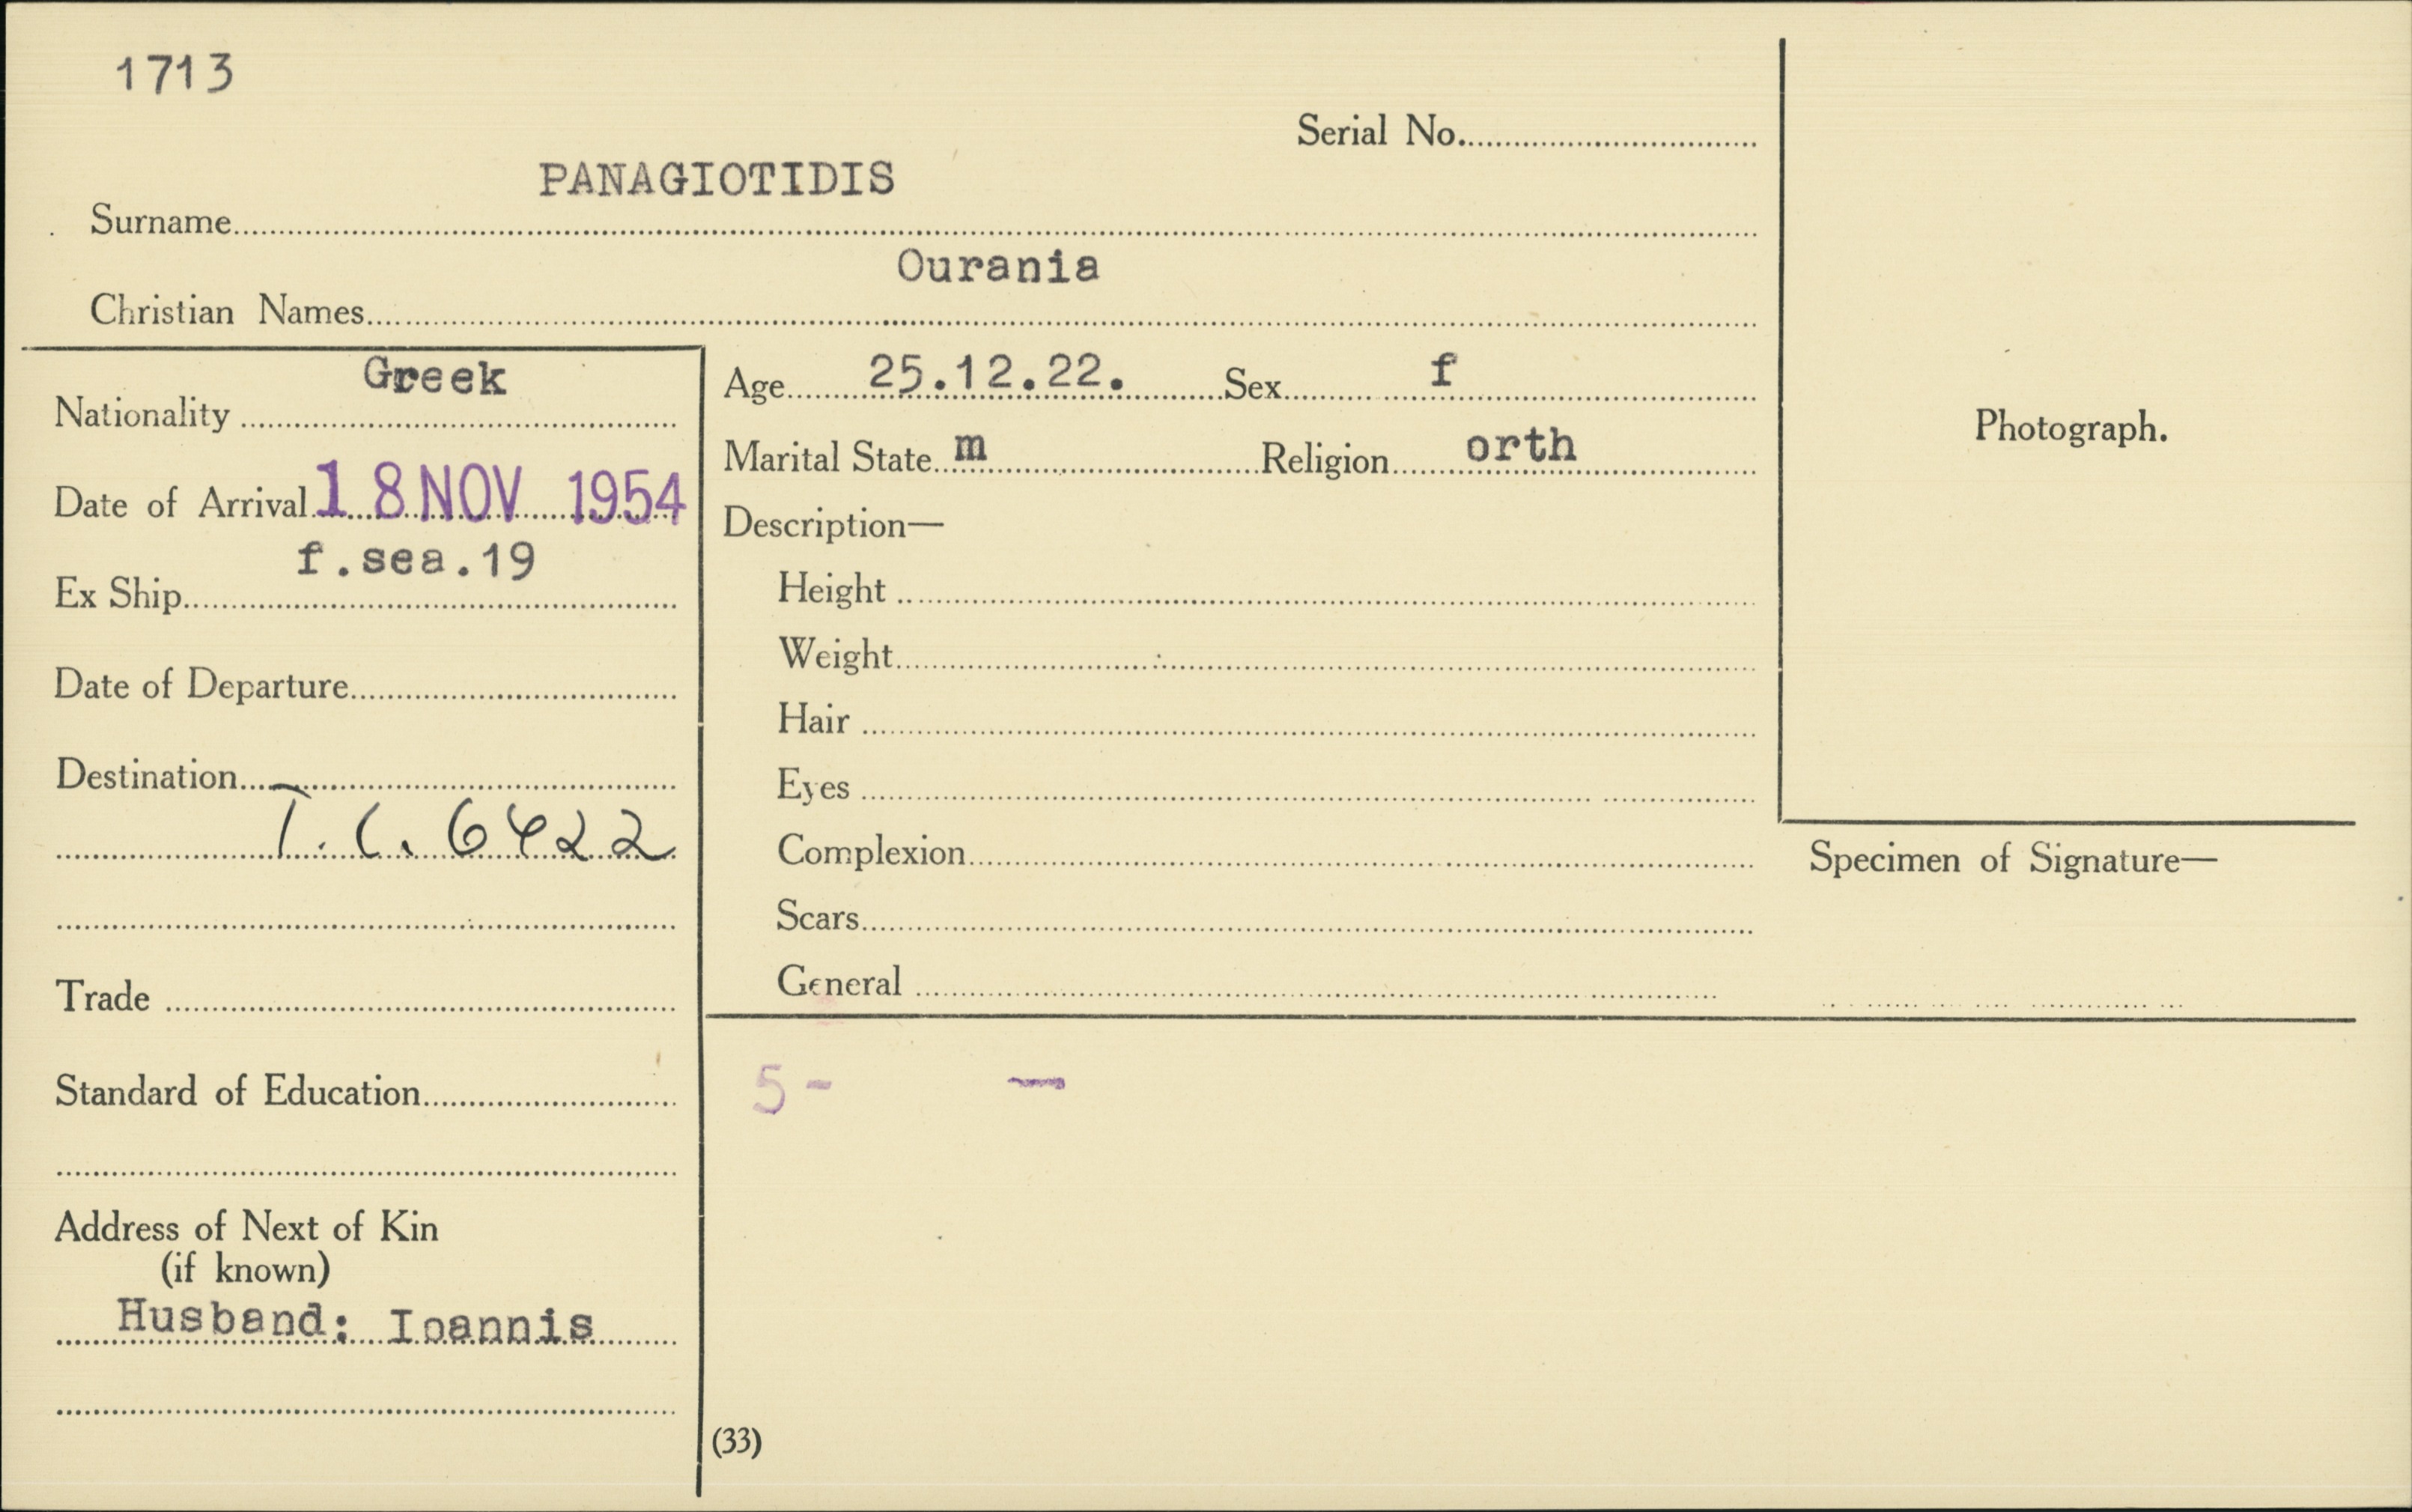 1713
Serial No.
PANAGIOTIDIS
Surname
Ourania
Christian Names
Greek
Nationality
Date of Arrival 18 NOV 1954
f.sea.19
Ex Ship
Date of Departure
Destination
T.C. 6422
Trade
Standard of Education
Address of Next of Kin
(if known)
Husband: Ioannis
Age 25.12.22. Sex f
Marital State m Religion orth
Description—
Height
Weight
Hair
Eyes
Complexion
Scars
General
5 - -
(33)
Photograph.
Specimen of Signature—